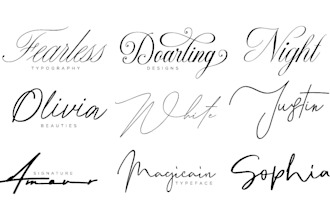 Fearless
TYPOGRAPHY
Doarling
DESIGNS
Night
Olivia
BEAUTIES
White
Justin
SIGNATURE
Amour
Magicain
TYPEFACE
Sophia